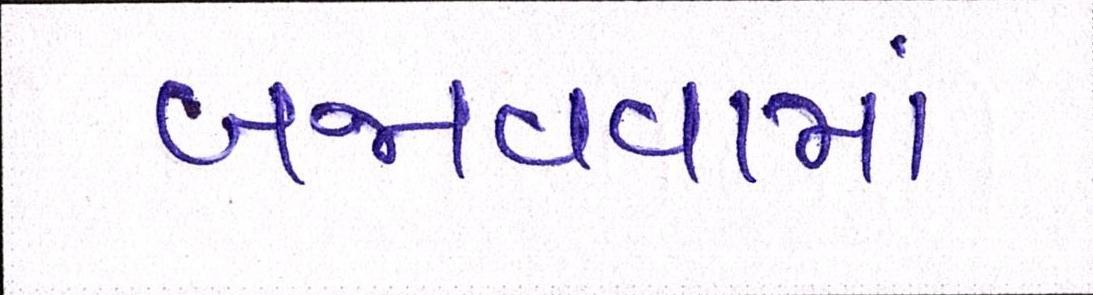 બજાવવામાં